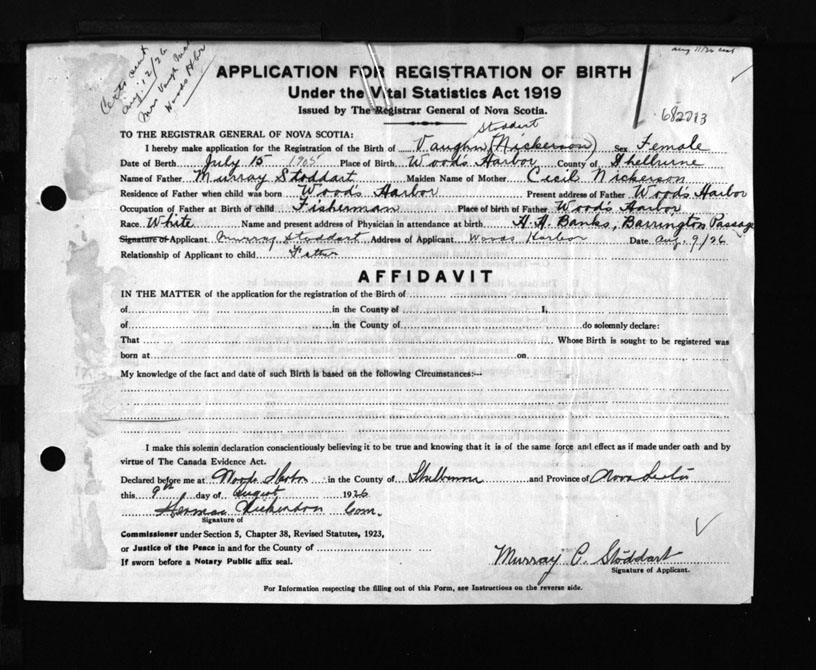 Certs sent
Aug. 12/26
Mrs Vaugh
Woods Hbr
Aug 11/26
APPLICATION FOR REGISTRATION OF BIRTH
Under the Vital Statistics Act 1919
Issued by The Registrar General of Nova Scotia.
682713
TO THE REGISTRAR GENERAL OF NOVA SCOTIA:
Stoddart
I hereby make application for the Registration of the Birth of Vaughn (Nickerson) Sex Female
Date of Berth July 15 1905 Place of Birth Wood's Harbor County of Shelburne
Name of Father Murray Stoddart Maiden Name of Mother Cecil Nickerson
Residence of Father when child was born Wood's Harbor Present address of Father Wood's Harbor
Occupation of Father at Birth of child Fisherman Place of birth of Father Wood's Harbor
Race White Name and present address of Physician in attendance at birth H. H. Banks, Barrington Passage
Signature of Applicant Murray Stoddart Address of Applicant Woods Harbor Date Aug. 9/26
Relationship of Applicant to child Father
AFFIDAVIT
IN THE MATTER of the application for the registration of the Birth of
of in the County of I,
of in the County of do solemnly declare:
That Whose Birth is sought to be registered was
born at on
My knowledge of the fact and date of such Birth is based on the following Circumstances:—
I make this solemn declaration conscientiously believing it to be true and knowing that it is of the same force and effect as if made under oath and by
virtue of The Canada Evidence Act.
Declared before me at Woods Harbor in the County of Shelburne and Province of Nova Scotia
this 9th day of August 1926
Herman Nickerson Com.
Signature of
Commissioner under Section 5, Chapter 38, Revised Statutes, 1923,
or Justice of the Peace in and for the County of
If sworn before a Notary Public affix seal.
Murray C. Stoddart
Signature of Applicant.
For Information respecting the filling out of this Form, see Instructions on the reverse side.